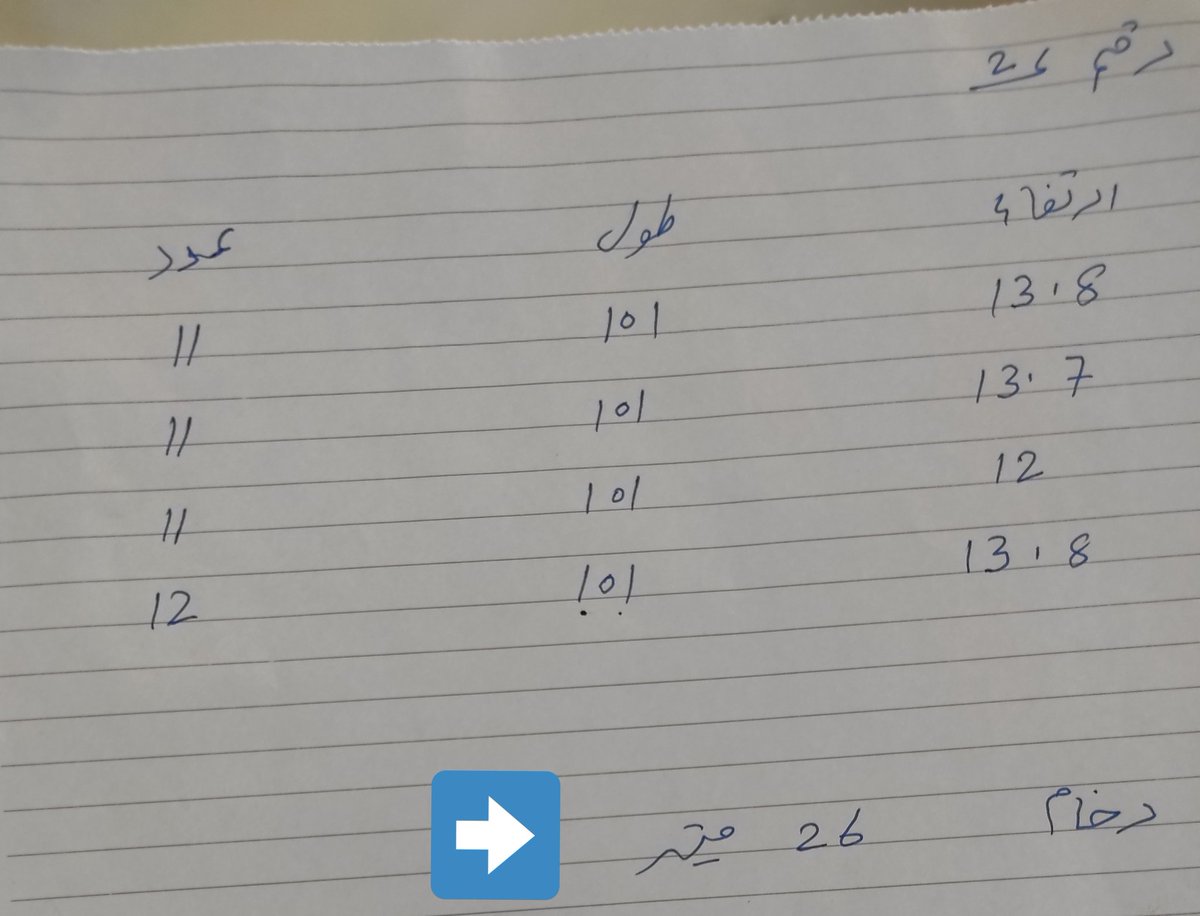 رقم 26
ارتفاع طول عدد
13.8 101 11
13.7 101 11
12 101 11
13.8 101 12
رخام 26 متر